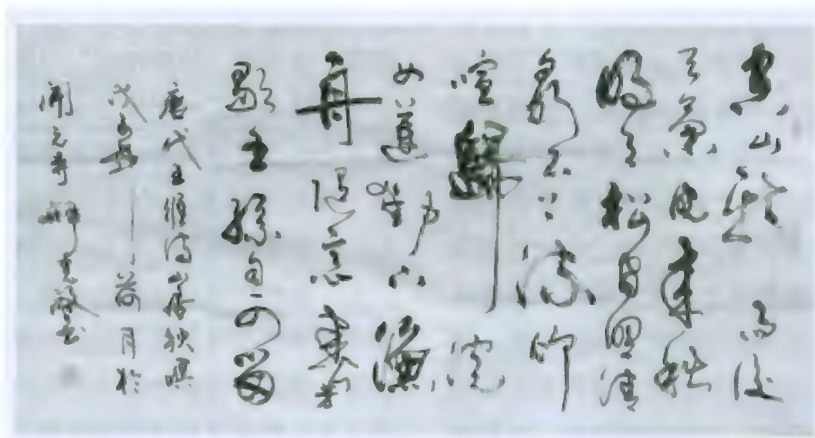 空山新雨後
天氣晚来秋
明月松間照清
泉石上流竹
喧歸浣
女蓮動下漁
舟随意春芳
歇王孫自可留
唐代王維詩山居秋暝
戊子荷月於
開元寺書